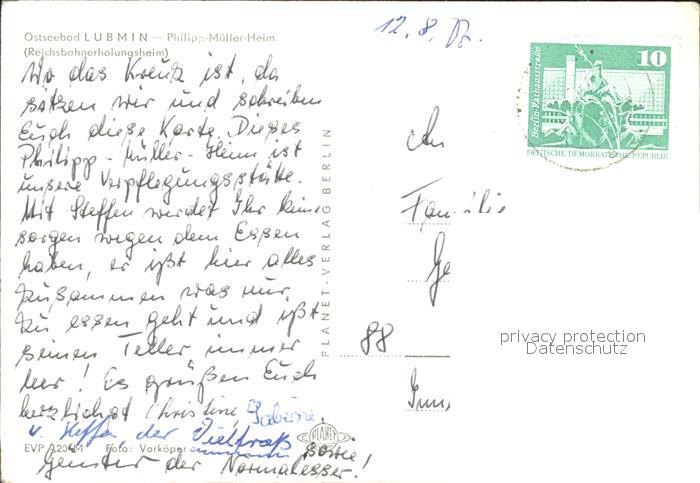 Ostseebad LUBMIN — Philipp-Müller-Heim
(Reichsbahnerholungsheim)
12. 8.
Wo das Kreuz ist, da
sitzen wir und schreiben
Euch diese Karte. Dieses
Philipp-Müller-Heim ist
unsere Verpflegungsstätte.
Mit Steffen werdet Ihr keine
sorgen wegen dem Essen
haben, er ißt hier alles
zusammen was nur
zu essen geht und ißt
seinen Teller immer
leer! Es grüßen Euch
herzlichst Christine, Sabine
u. Steffen der Vielfraß sowie
der Normalesser!
EVP Foto: Vorköper
PLANET
PLANET-VERLAG BERLIN
Berlin-Rathausstraße
10
DEUTSCHE DEMOKRATISCHE REPUBLIK
An
Familie
Ge
88
privacy protection
Datenschutz